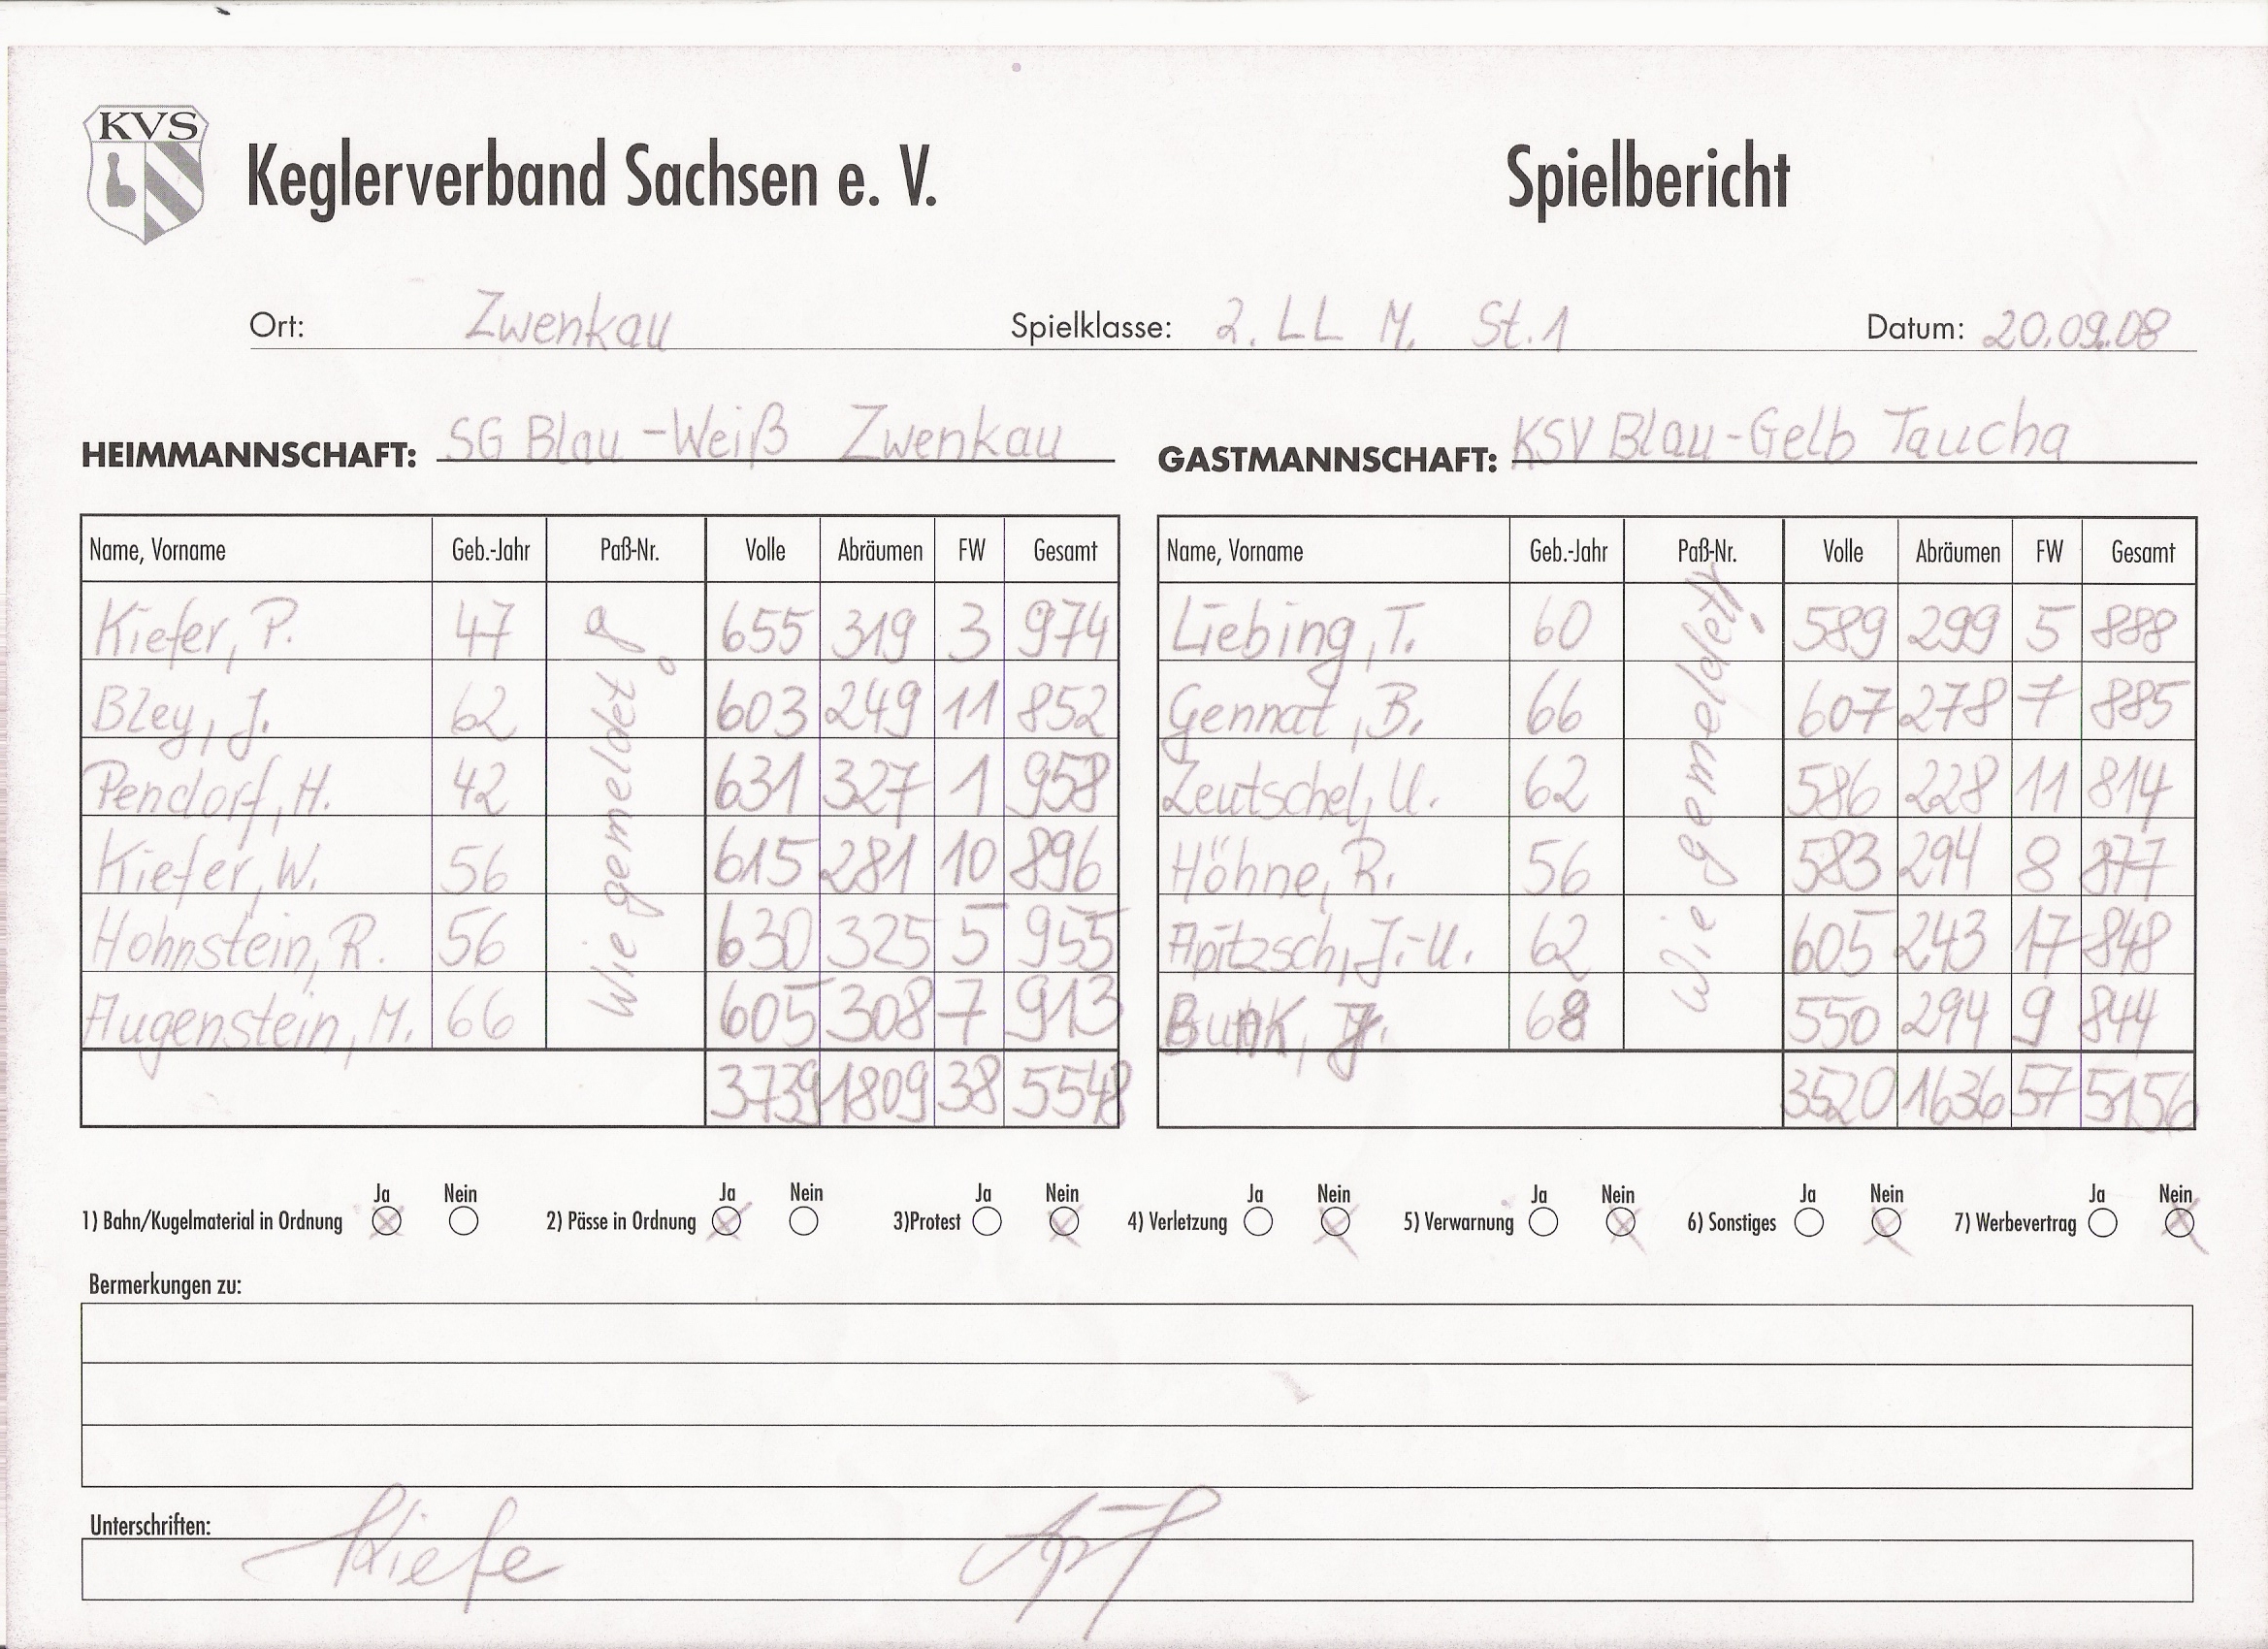 KVS
Keglerverband Sachsen e. V. Spielbericht
Ort: Zwenkau Spielklasse: 2. LL M. St. 1 Datum: 20.09.08
HEIMMANNSCHAFT: SG Blau-Weiß Zwenkau GASTMANNSCHAFT: KSV Blau-Gelb Taucha
Name, Vorname Geb.-Jahr Paß-Nr. Volle Abräumen FW Gesamt Name, Vorname Geb.-Jahr Paß-Nr. Volle Abräumen FW Gesamt
Kiefer, P. 47 655 319 3 974 Liebing, T. 60 589 299 5 888
Bley, J. 62 603 249 11 852 Gennat, B. 66 607 278 7 885
Pendorf, H. 42 631 327 1 958 Zeutschel, U. 62 586 228 11 814
Kiefer, W. 56 615 281 10 896 Höhne, R. 56 583 294 8 877
Hohnstein, R. 56 630 325 5 955 Apitzsch, J.-U. 62 605 243 17 848
Augenstein, M. 66 605 308 7 913 Bunk, 68 550 294 9 844
wie gemeldet wie gemeldet!
3739 1809 38 5548 3520 1636 57 5156
Ja Nein Ja Nein Ja Nein Ja Nein Ja Nein Ja Nein Ja Nein
1) Bahn/Kugelmaterial in Ordnung 2) Pässe in Ordnung 3)Protest 4) Verletzung 5) Verwarnung 6) Sonstiges 7) Werbevertrag
Bermerkungen zu:
Unterschriften:
Kiefe